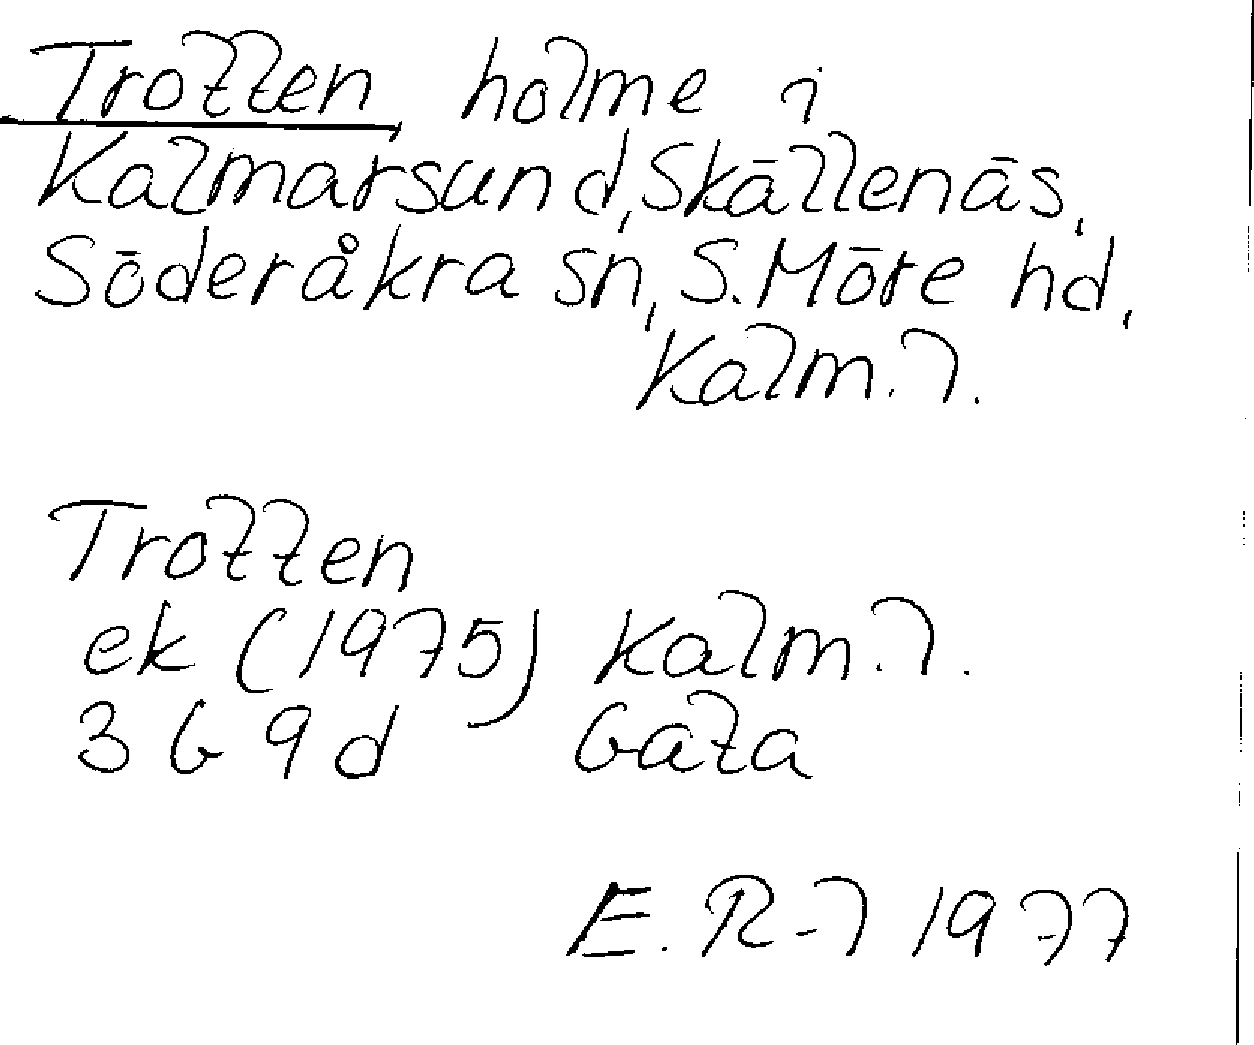 Trotten, holme i
Kalmarsund, Skällenäs,
Söderåkra sn, S. Möre hd,
Kalm. l.
Trotten
ek (1975) Kalm. l.
3 G 9 d Gata
E. R-l 1977